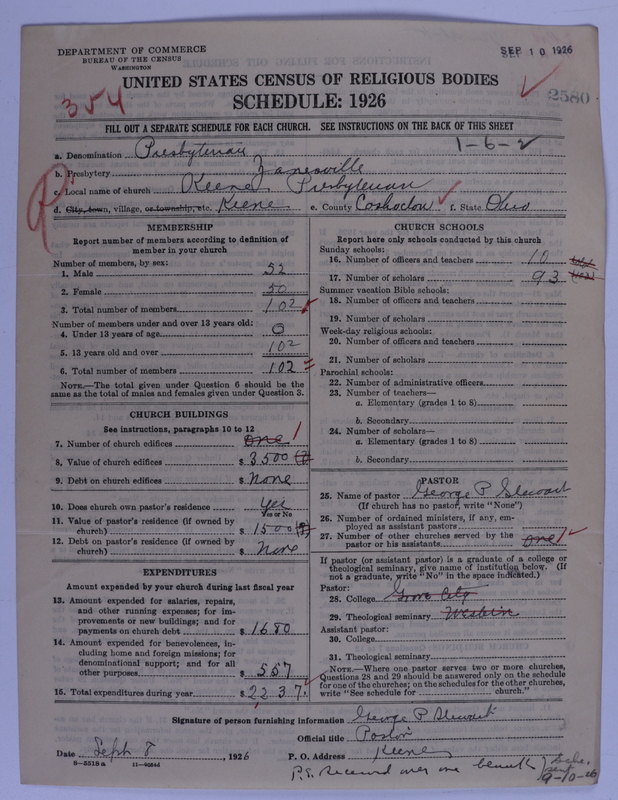 DEPARTMENT OF COMMERCE
BUREAU OF THE CENSUS
WASHINGTON
SEP 10 1926
UNITED STATES CENSUS OF RELIGIOUS BODIES
SCHEDULE: 1926
354
2580
FILL OUT A SEPARATE SCHEDULE FOR EACH CHURCH. SEE INSTRUCTIONS ON THE BACK OF THIS SHEET
1-6-2
a. Denomination Presbyterian
b. Presbytery Zanesville
c. Local name of church Keene Presbyterian
d. City, town, village, or township, etc. Keene e. County Coshocton f. State Ohio
MEMBERSHIP
Report number of members according to definition of member in your church
Number of members, by sex:
1. Male 52
2. Female 50
3. Total number of members 102
Number of members under and over 13 years old:
4. Under 13 years of age 0
5. 13 years old and over 102
6. Total number of members 102
NOTE.—The total given under Question 6 should be the same as the total of males and females given under Question 3.
CHURCH BUILDINGS
See instructions, paragraphs 10 to 12
7. Number of church edifices One 1
8. Value of church edifices $ 3500 (?)
9. Debt on church edifices $ None
10. Does church own pastor's residence Yes
Yes or No
11. Value of pastor's residence (if owned by church) $ 1500 (?)
12. Debt on pastor's residence (if owned by church) $ None
EXPENDITURES
Amount expended by your church during last fiscal year
13. Amount expended for salaries, repairs, and other running expenses; for improvements or new buildings; and for payments on church debt $ 1680
14. Amount expended for benevolences, including home and foreign missions; for denominational support; and for all other purposes $ 557
15. Total expenditures during year $ 2237.
CHURCH SCHOOLS
Report here only schools conducted by this church
Sunday schools:
16. Number of officers and teachers 10
17. Number of scholars 93
Summer vacation Bible schools:
18. Number of officers and teachers
19. Number of scholars
Week-day religious schools:
20. Number of officers and teachers
21. Number of scholars
Parochial schools:
22. Number of administrative officers
23. Number of teachers—
a. Elementary (grades 1 to 8)
b. Secondary
24. Number of scholars—
a. Elementary (grades 1 to 8)
b. Secondary
PASTOR
25. Name of pastor George P Stewart
(If church has no pastor, write "None")
26. Number of ordained ministers, if any, employed as assistant pastors
27. Number of other churches served by the pastor or his assistants One 1
If pastor (or assistant pastor) is a graduate of a college or theological seminary, give name of institution below. (If not a graduate, write "No" in the space indicated.)
Pastor:
28. College Grove City
29. Theological seminary Western
Assistant pastor:
30. College
31. Theological seminary
NOTE.—Where one pastor serves two or more churches, Questions 28 and 29 should be answered only on the schedule for one of the churches; on the schedules for the other churches, write "See schedule for church."
Signature of person furnishing information George P Stewart
Official title Pastor
Date Sept 8, 1926 P. O. Address Keene
8-5518a
P.S. Received over one
sent
9-10-26